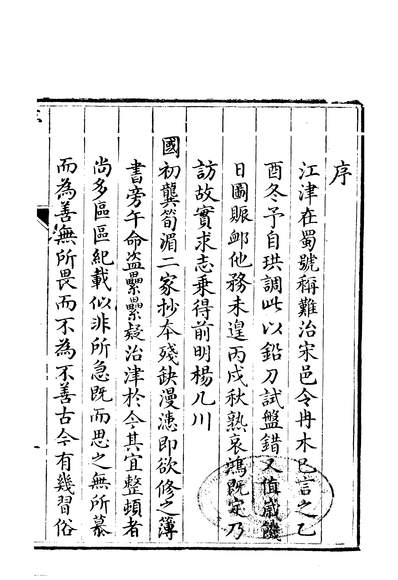 序
江津在蜀號稱難治宋邑令冉木已言之乙
酉冬予自珙調此以鉛刀試盤錯又值歲饑
日圖賑邮他務未遑丙戌秋熟哀鴻既定乃
訪故實求志乘得前明楊几川
國初龔筍湄二家抄本殘缺漫漶即欲修之簿
書旁午命盜纍纍疑治津於今其宜整頓者
尚多區區紀載似非所急既而思之無所慕
而為善無所畏而不為不善古今有幾習俗